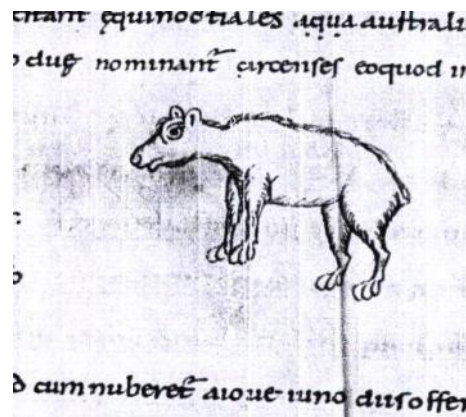 citant ȩquinoctiales aqua australi
duȩ nominant̄ circenses eoquod in
d cum nuberet̄ aioue iuno dus offer